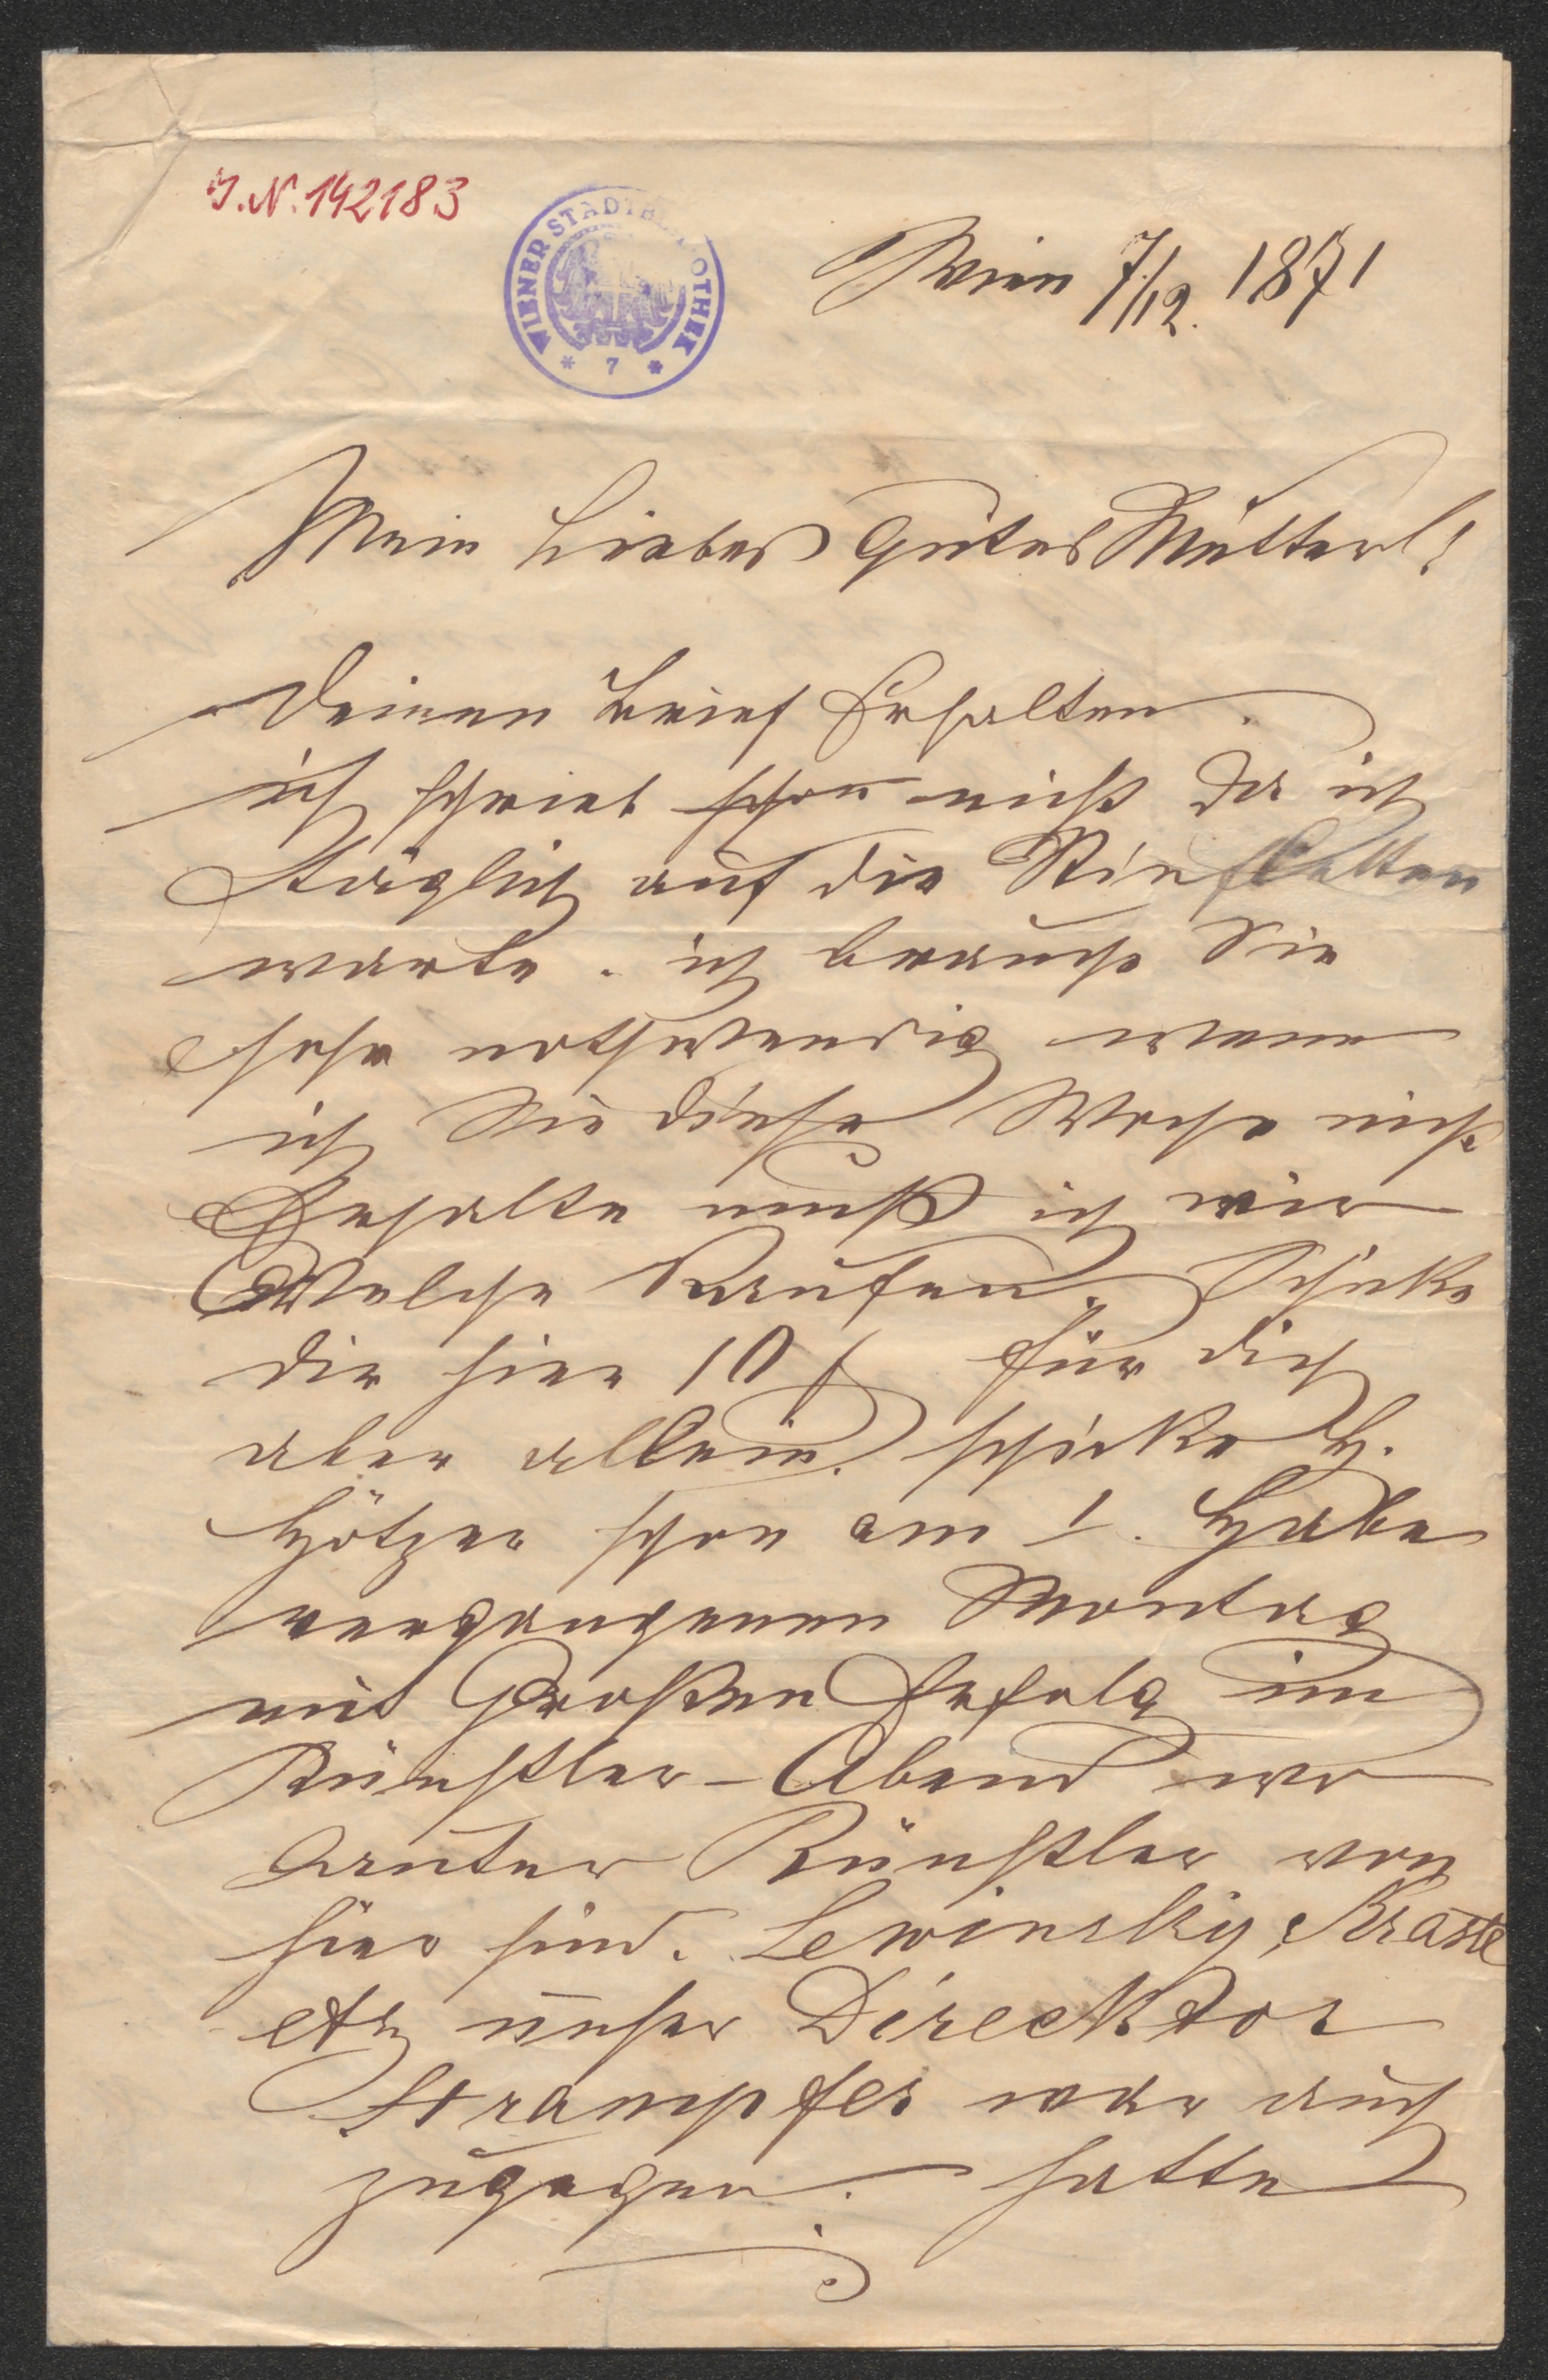 J. N. 142183
WIENER STADTBIBLIOTHEK
* 7 *
Wien 7/12. 1871
Mein Liebes Gutes Mutterl!
Deinen Brief Erhalten.
ich schrieb schon nicht da ich
täglich auf die
warte. ich brauche Sie
sehr nothwendig wenn
ich Sie diese Woche nicht
Erhalte muß ich mir
Welche Kaufen. Schicke
dir hier 10 f für dich
aber allein. schicke H.
Götzer schon am 1. Habe
vergangenen Montag
mit Großen Erfolg im
Künstler-Abend wo
lauter Künstler von
hier sind. Lewinsky, Krastel
etz unser Direcktor
Strampfer war auch
zugegen. hatte